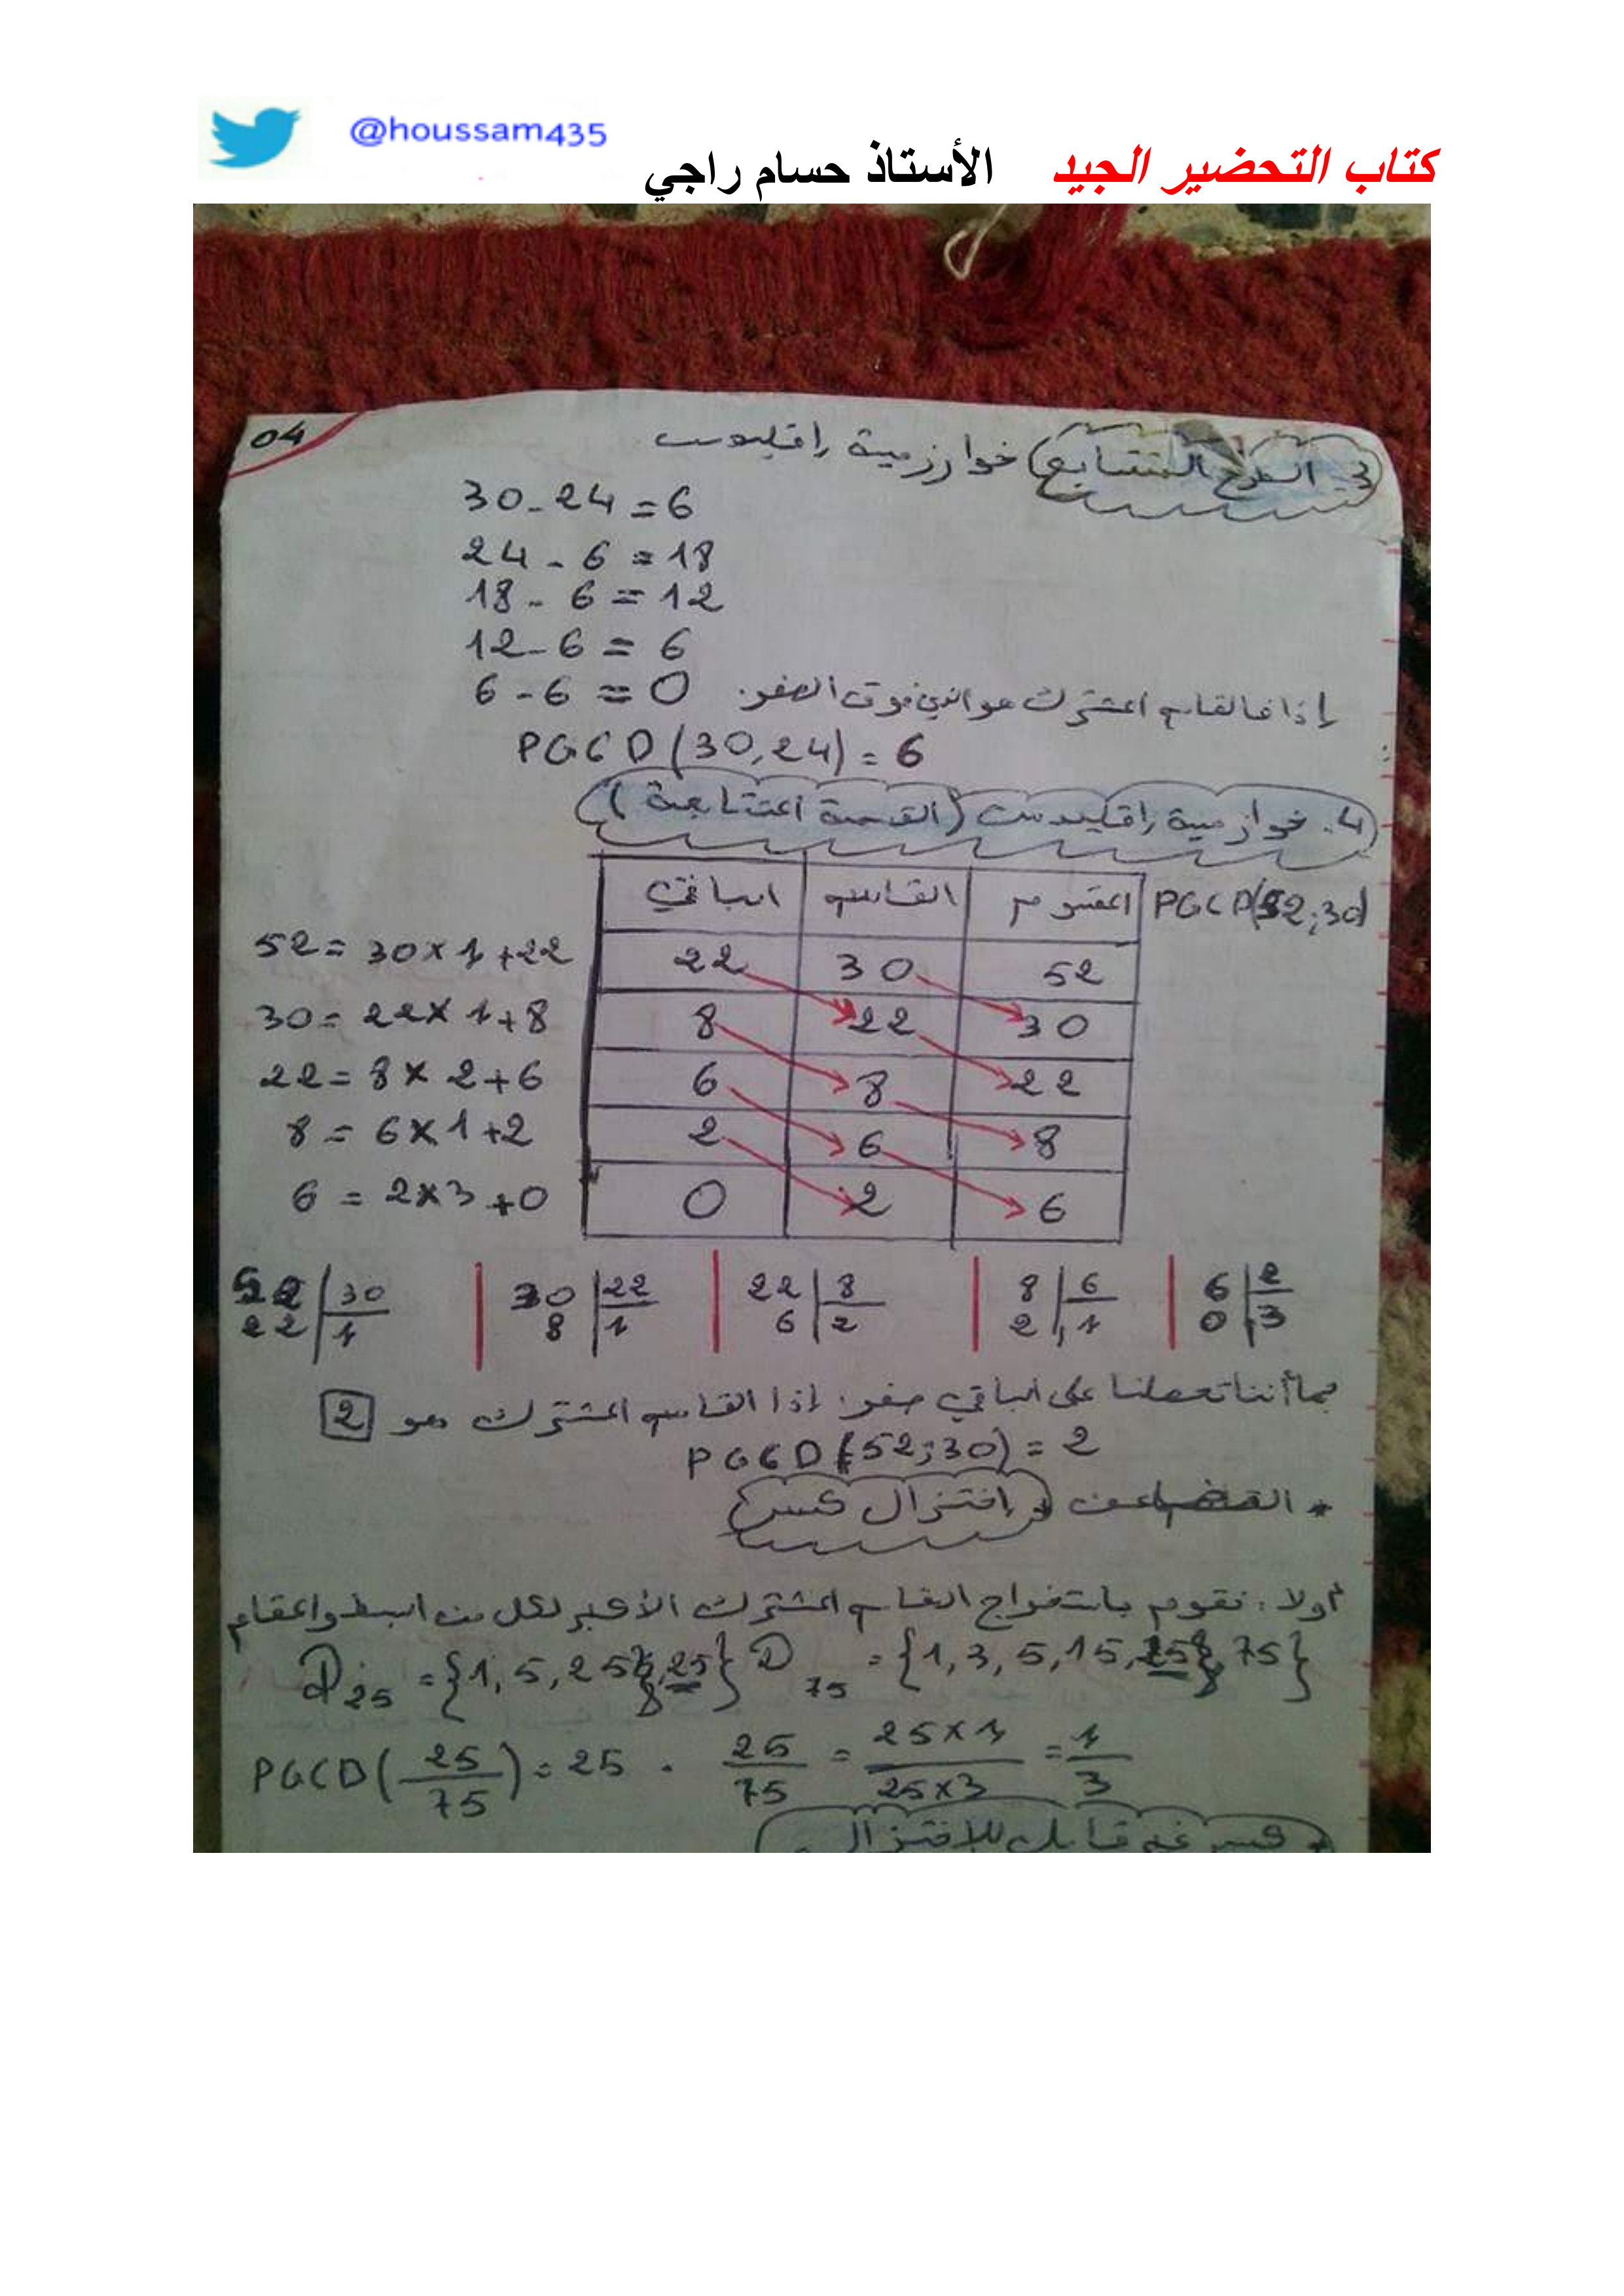 @houssam435
كتاب التحضير الجيد الأستاذ حسام راجي
04
3. الطرح المتتابع) خوارزمية إقليدس
30 - 24 = 6
24 - 6 = 18
18 - 6 = 12
12 - 6 = 6
6 - 6 = 0 إذا فالقاسم المشترك هو الذي فوق الصفر.
PGCD(30,24) = 6
4. خوارزمية إقليدس (القسمة المتتابعة)
PGCD(52;30)
المقسوم القاسم الباقي
52 30 22 52 = 30 × 1 + 22
30 22 8 30 = 22 × 1 + 8
22 8 6 22 = 8 × 2 + 6
8 6 2 8 = 6 × 1 + 2
6 2 0 6 = 2 × 3 + 0
52 30 | 30 22 | 22 8 | 8 6 | 6 2
22 1 | 8 1 | 6 2 | 2 1 | 0 3
بما أننا تحصلنا على الباقي صفر. إذا القاسم المشترك هو 2
PGCD(52;30) = 2
* إختزال كسر
أولا: نقوم باستخراج القاسم المشترك الأكبر لكل من البسط والمقام
D25 = {1, 5, 25} D75 = {1, 3, 5, 15, 25, 75}
PGCD(25/75) = 25 . 25/75 = 25×1/25×3 = 1/3
* كسر غير قابل للاختزال